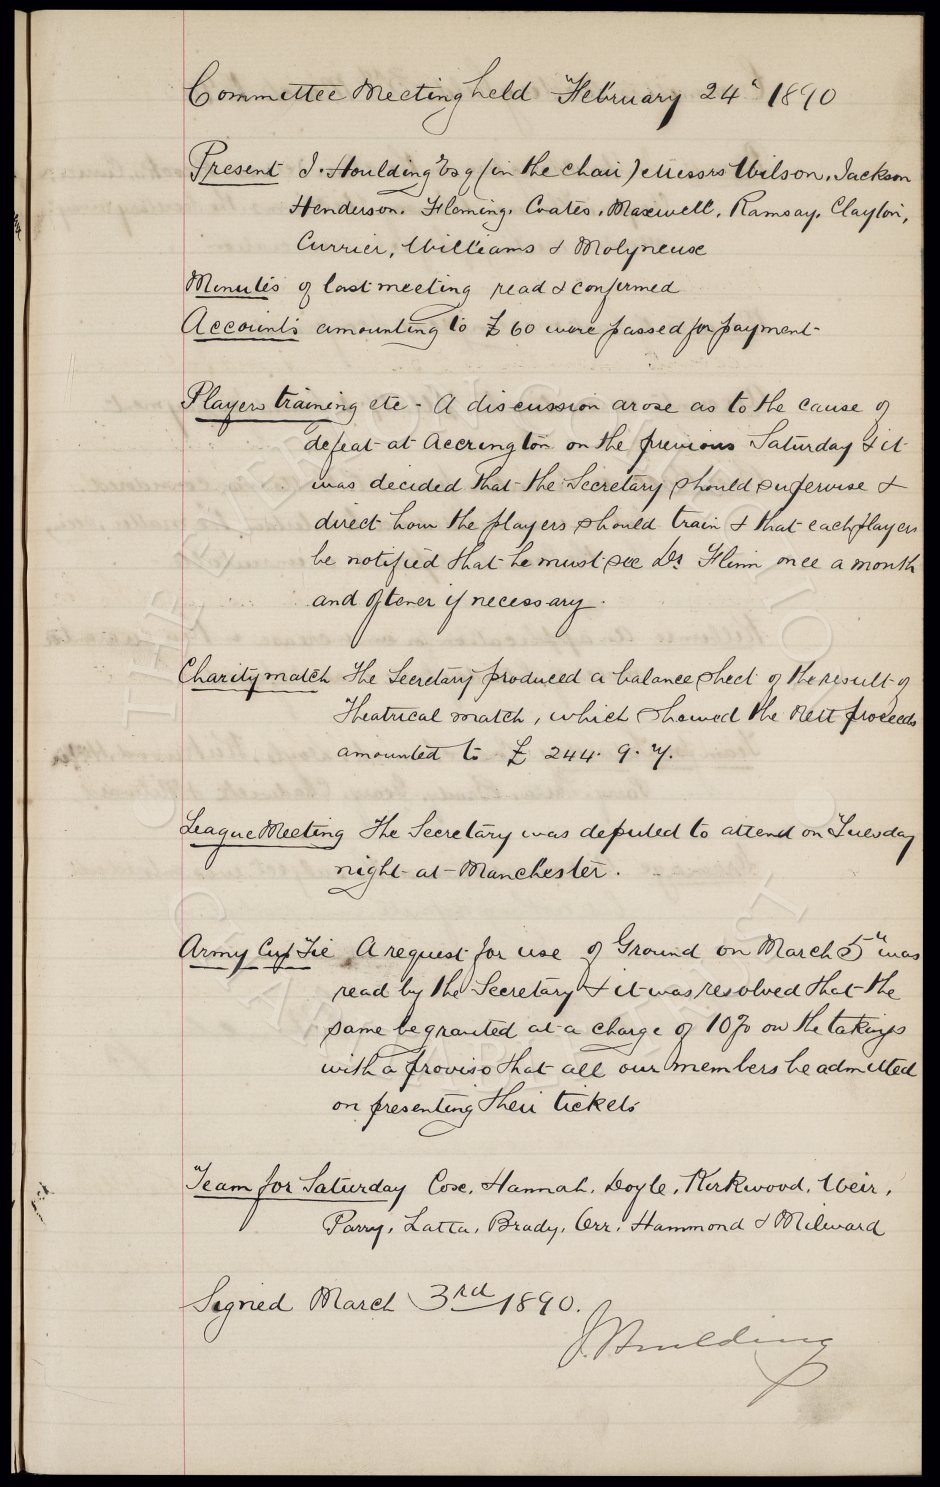 Committee Meeting held February 24" 1890
Present J. Houlding Esq (in the chair) Messrs Wilson, Jackson
Henderson. Fleming. Coates. Maxwell. Ramsay. Clayton.
Currier, Williams & Molyneux
Minutes of last meeting read & confirmed
Accounts amounting to £60 were passed for payment
Players training etc - A discussion arose as to the cause of
defeat at Accrington on the previous Saturday & it
was decided that the Secretary should supervise &
direct how the players should train & that each players
be notified that he must see Dr Flinn once a month
and oftener if necessary.
Charity match The Secretary produced a balance sheet of the result of
Theatrical match, which showed the Nett proceeds
amounted to £ 244. 9. 7.
League Meeting The Secretary was deputed to attend on Tuesday
night at Manchester.
Army Cup Tie A request for use of Ground on March 5" was
read by the Secretary & it was resolved that the
same be granted at a charge of 10% on the takings
with a proviso that all our members be admitted
on presenting their tickets
Team for Saturday Cox, Hannah, Doyle, Kirkwood, Weir,
Parry, Latta, Brady, Orr, Hammond & Milward
Signed March 3rd 1890.
J. Houlding
THE
EVERTON
COLLECTION
CHARITABLE TRUST